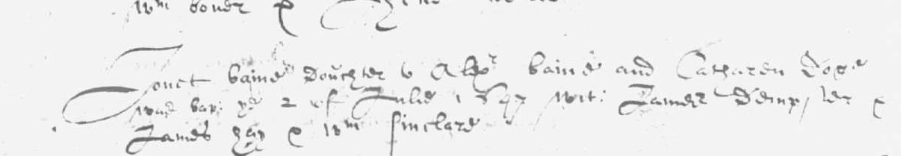 wm bover
Jonet baine douchter to Alexr baine and Catharen Doge
was bap: ye 2 of Julie 1647 wit: James Demp,ter x
James hay x wm sinclare